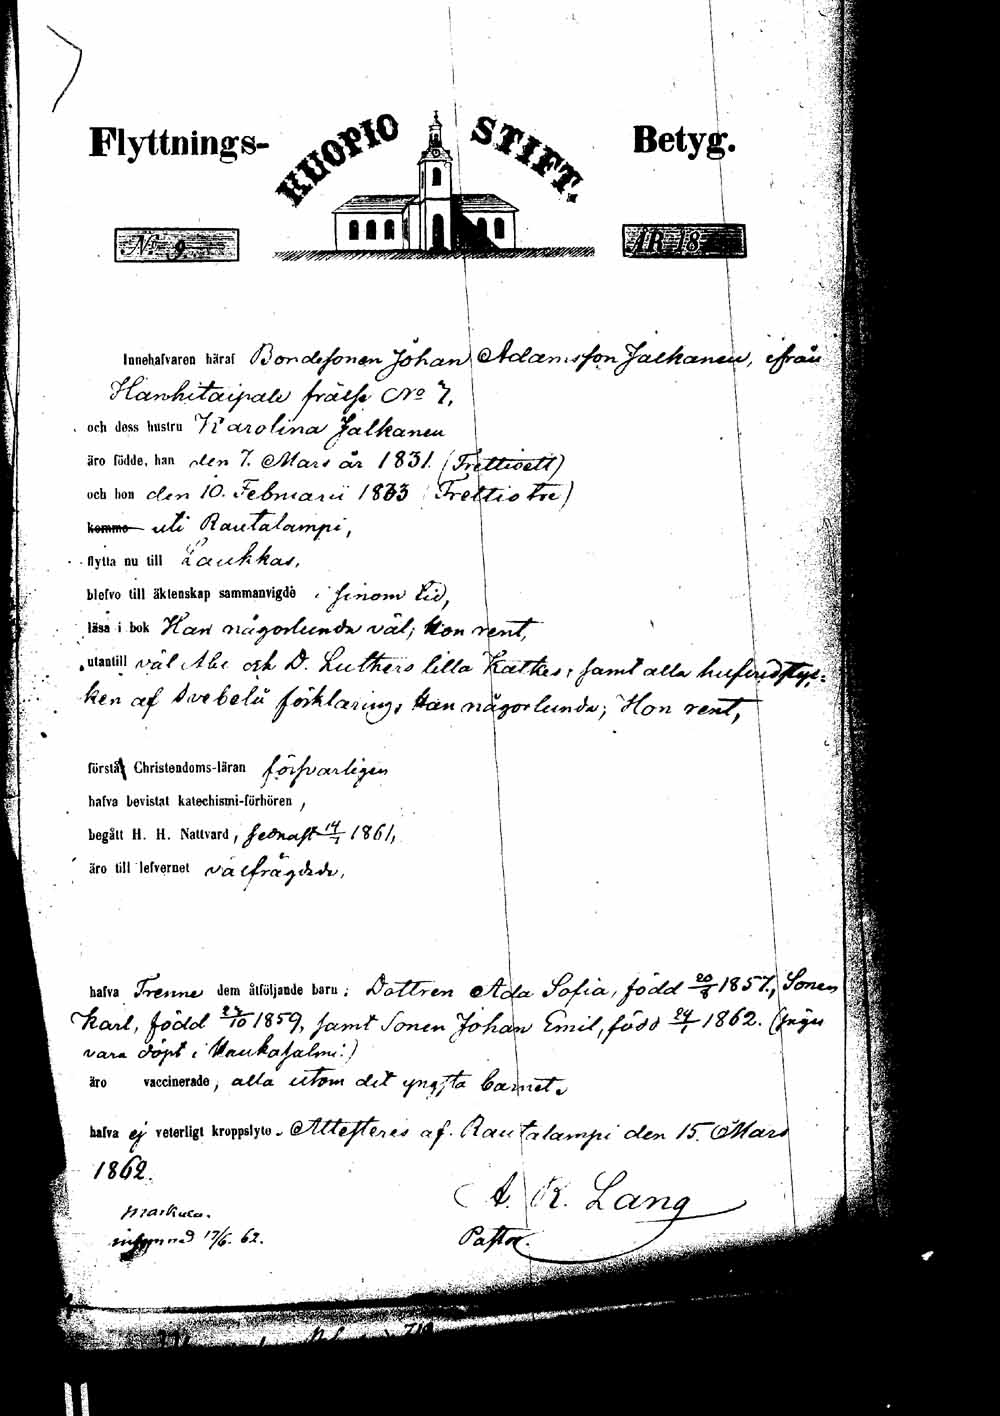 Flyttnings- KUOPIO STIFT. Betyg.
No 9. ÅR 18
Innehafvaren häraf Bondesonen Johan Adamsson Jalkanen, ifrån
Hanhitaipale frälse No 7,
och dess hustru Karolina Jalkanen
äro födde, han den 7. Mars år 1831. (Trettioett)
och hon den 10. Februarii 1833 (Trettiotre)
komma uti Rautalampi,
flytta nu till Laukkas,
blefvo till äktenskap sammanvigde i sinom tid,
läsa i bok Han någorlunda väl; Hon rent,
utantill väl Abc och D. Luthers lilla Kathes; samt alla hufvudstyc-
ken af Svebelii förklaring, Han någorlunda; Hon rent,
förstå Christendoms-läran försvarligen
hafva bevistat katechismi-förhören,
begått H. H. Nattvard, sednast 14/1 1861,
äro till lefvernet välfrägdade,
hafva Trenne dem åtföljande barn: Dottren Ada Sofia, född 20/8 1857, Sonen
Karl, född 27/10 1859, samt Sonen Johan Emil, född 24/1 1862. (säges
vara döpt i Haukasalmi!)
äro vaccinerade, alla utom det yngsta barnet.
hafva ej veterligt kroppslyte. Attesteres af. Rautalampi den 15. Mars
1862.
A. K. Lang
Pastor.
17/6. 62.